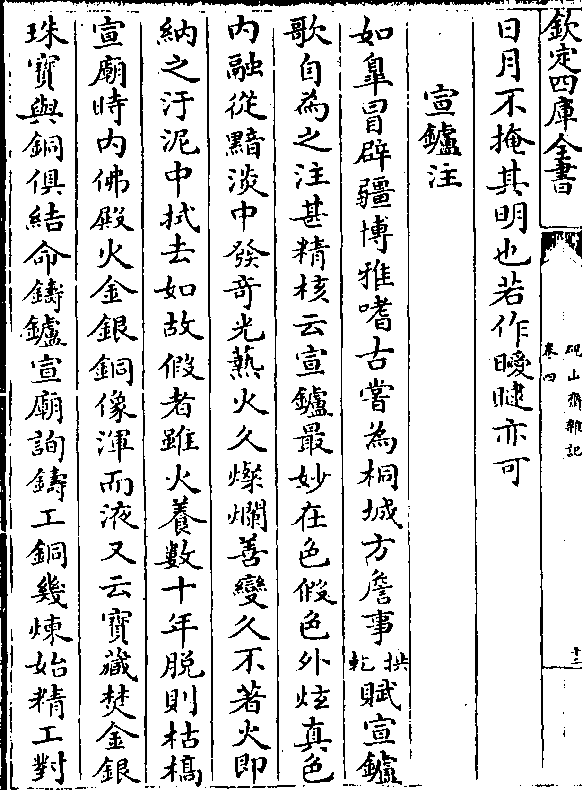 欽定四庫全書
硯山齋雜記
卷四
十三
日月不掩其明也若作曖㬠亦可
宣鑪注
如臯冒辟疆博雅嗜古嘗為桐城方詹事拱乾賦宣鑪
歌自為之注甚精核云宣鑪最妙在色假色外炫真色
内融從黯淡中發奇光爇火久燦爛善變久不著火即
納之汙泥中拭去如故假者雖火養數十年脱則枯槁
宣廟時内佛殿火金銀銅像渾而液又云寳藏焚金銀
珠寳與銅俱結命鑄鑪宣廟詢鑄工銅幾煉始精工對